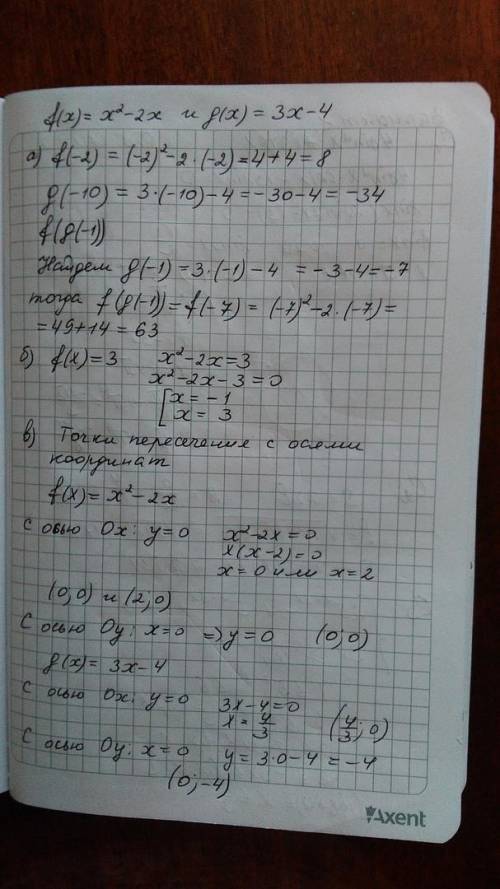 f(x) = x² – 2x и g(x) = 3x – 4
а) f(-2) = (-2)² - 2 · (-2) = 4 + 4 = 8
g(-10) = 3·(-10) - 4 = -30 - 4 = -34
f(g(-1))
Найдем g(-1) = 3·(-1) - 4 = -3 - 4 = -7
тогда f(g(-1)) = f(-7) = (-7)² - 2·(-7) =
= 49 + 14 = 63
б) f(x) = 3 x² - 2x = 3
x² - 2x - 3 = 0
[x = -1
x = 3
в) Точки пересечения с осями
координат
f(x) = x² - 2x
С осью Ox: y = 0 x² - 2x = 0
x(x - 2) = 0
x = 0 или x = 2
(0; 0) и (2; 0)
С осью Oy: x = 0 => y = 0 (0; 0)
g(x) = 3x - 4
С осью Ox: y = 0 3x - 4 = 0
x = 4/3 (4/3; 0)
С осью Oy: x = 0 y = 3·0 - 4 = -4
(0; -4)
Axent